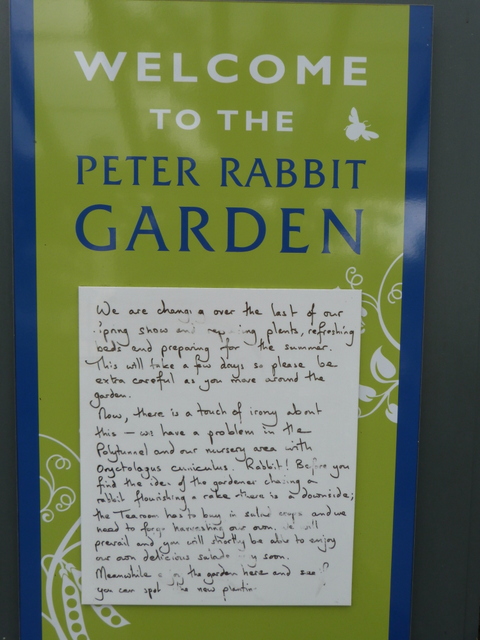 WELCOME
TO THE
PETER RABBIT
GARDEN
We are changi g over the last of our
spring show and ing plants, refreshing
beds and preparing for the summer.
This will take a few days so please be
extra careful as you move around the
garden.
Now, there is a touch of irony about
this - we have a problem in the
Polytunnel and our nursery area with
Oryctolagus cuniculus. Rabbit! Before you
find the idea of the gardener chasing a
rabbit flourishing a rake there is a downside;
the Tearoom has to buy in salad crops and we
need to forgo harvesting our own. We will
prevail and you will shortly be able to enjoy
our own delicious salads soon.
Meanwhile the garden here and see if
you can spot the new